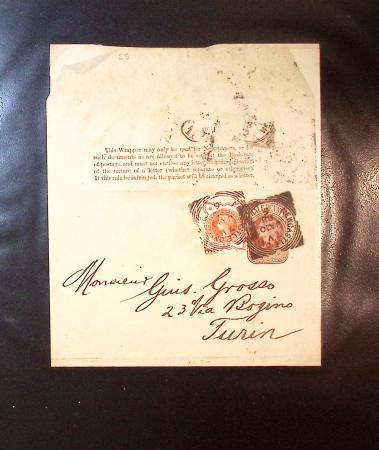 58
This Wrapper may only be used for Newspapers, or for
such documents as are allowed to be sent at the Book-rate
of postage, and must not enclose any letter or communication
of the nature of a letter (whether separate or otherwise).
If this rule be infringed, the packet will be charged as a letter.
Monsieur Gius. Grosso
23 Via Bogino
Turin